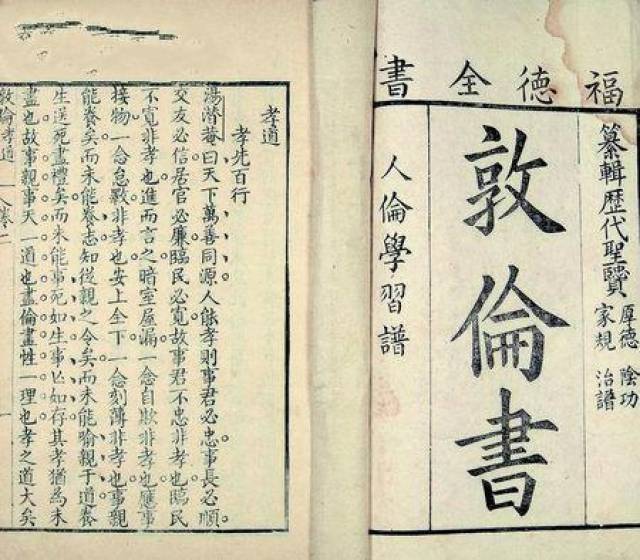 福德全書
纂輯歷代聖賢
厚德 陰功
家規 治譜
敦倫書
人倫學習譜
孝道
孝先百行
湯潛菴曰天下萬善同源人能孝則事君必忠事長必順。
交友必信。居官必廉。臨民必寬。故事君不忠非孝也。臨民
不寬非孝也。進而言之暗室屋漏一念自欺非孝也。應事
接物一念怠戲非孝也。安上全下一念刻薄非孝也。事親
能養矣。而未能養志。知從親之令矣。而未能喻親于道。養
生送死盡禮矣。而未能事死如生。事亡如存。其孝猶為未
盡也。故事親事天一道也。盡倫盡性一理也。孝之道大矣
敦倫孝道 卷一 一